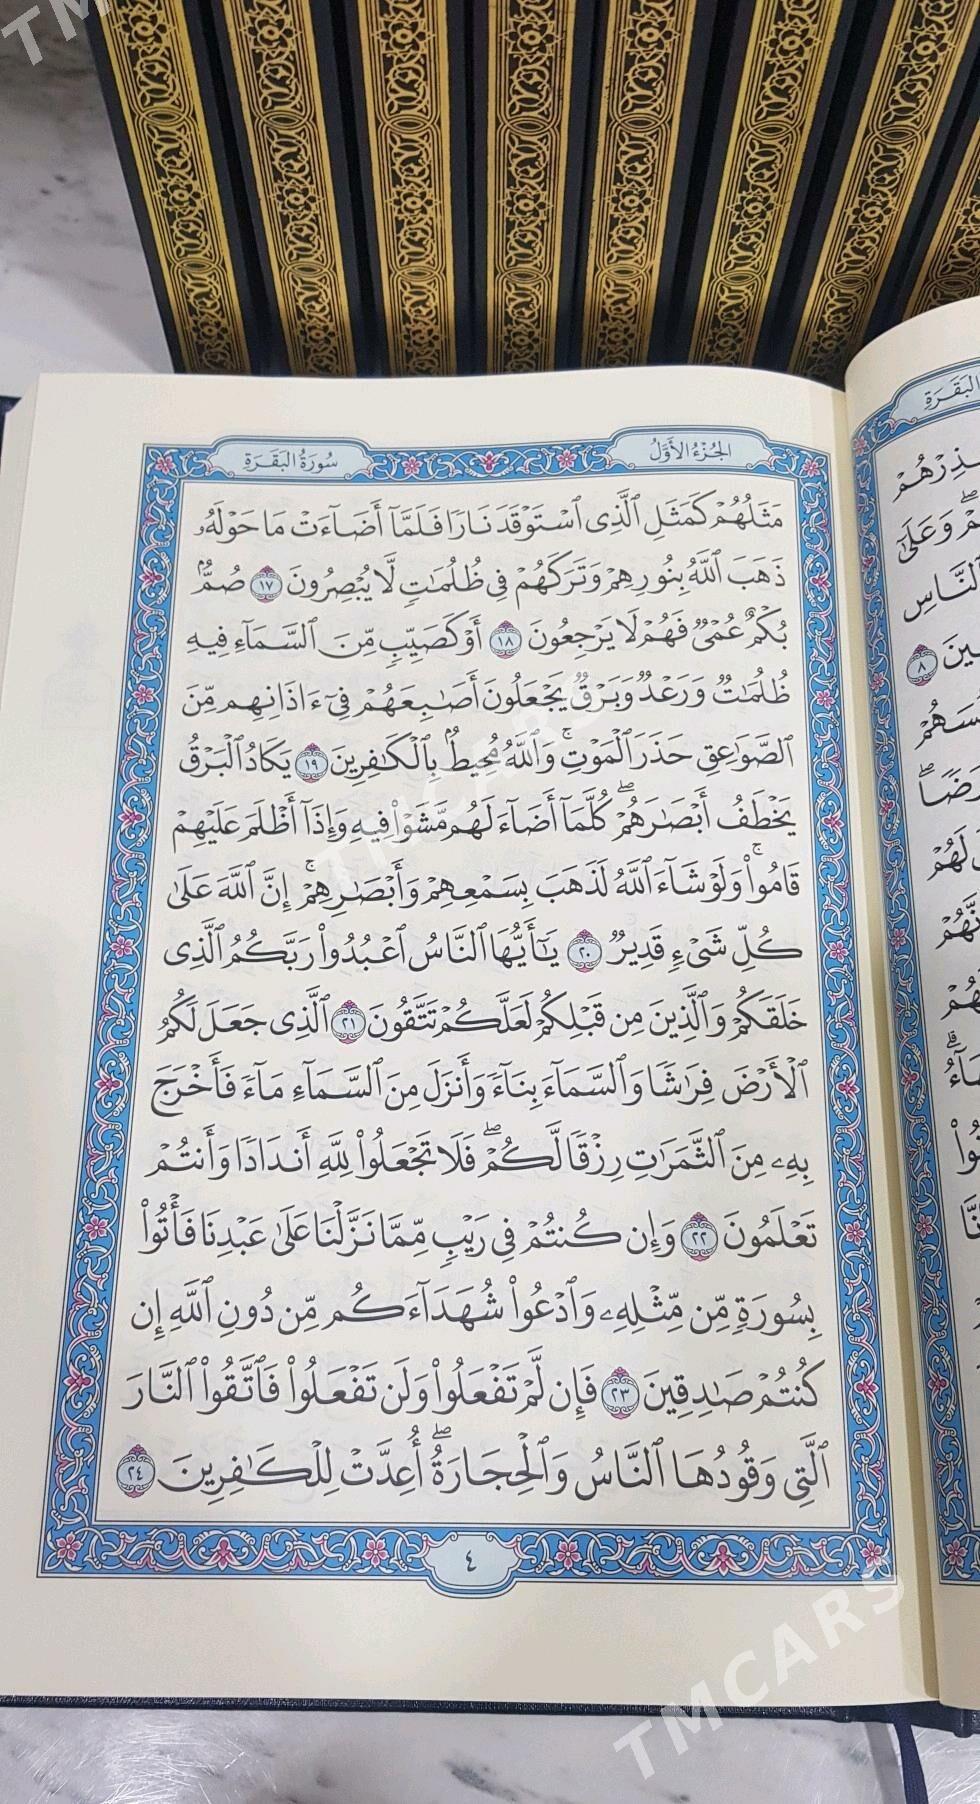 TM
الجُزْءُ الأَوَّلُ
سُورَةُ البَقَرَةِ
مَثَلُهُمْ كَمَثَلِ ٱلَّذِى ٱسْتَوْقَدَ نَارًا فَلَمَّآ أَضَآءَتْ مَا حَوْلَهُۥ
ذَهَبَ ٱللَّهُ بِنُورِهِمْ وَتَرَكَهُمْ فِى ظُلُمَٰتٍ لَّا يُبْصِرُونَ ١٧ صُمٌّۢ
بُكْمٌ عُمْىٌ فَهُمْ لَا يَرْجِعُونَ ١٨ أَوْ كَصَيِّبٍ مِّنَ ٱلسَّمَآءِ فِيهِ
ظُلُمَٰتٌ وَرَعْدٌ وَبَرْقٌ يَجْعَلُونَ أَصَٰبِعَهُمْ فِىٓ ءَاذَانِهِم مِّنَ
ٱلصَّوَٰعِقِ حَذَرَ ٱلْمَوْتِ ۚ وَٱللَّهُ مُحِيطٌۢ بِٱلْكَٰفِرِينَ ١٩ يَكَادُ ٱلْبَرْقُ
يَخْطَفُ أَبْصَٰرَهُمْ ۖ كُلَّمَآ أَضَآءَ لَهُم مَّشَوْا۟ فِيهِ وَإِذَآ أَظْلَمَ عَلَيْهِمْ
قَامُوا۟ ۚ وَلَوْ شَآءَ ٱللَّهُ لَذَهَبَ بِسَمْعِهِمْ وَأَبْصَٰرِهِمْ ۚ إِنَّ ٱللَّهَ عَلَىٰ
كُلِّ شَىْءٍ قَدِيرٌ ٢٠ يَٰٓأَيُّهَا ٱلنَّاسُ ٱعْبُدُوا۟ رَبَّكُمُ ٱلَّذِى
خَلَقَكُمْ وَٱلَّذِينَ مِن قَبْلِكُمْ لَعَلَّكُمْ تَتَّقُونَ ٢١ ٱلَّذِى جَعَلَ لَكُمُ
ٱلْأَرْضَ فِرَٰشًا وَٱلسَّمَآءَ بِنَآءً وَأَنزَلَ مِنَ ٱلسَّمَآءِ مَآءً فَأَخْرَجَ
بِهِۦ مِنَ ٱلثَّمَرَٰتِ رِزْقًا لَّكُمْ ۖ فَلَا تَجْعَلُوا۟ لِلَّهِ أَندَادًا وَأَنتُمْ
تَعْلَمُونَ ٢٢ وَإِن كُنتُمْ فِى رَيْبٍ مِّمَّا نَزَّلْنَا عَلَىٰ عَبْدِنَا فَأْتُوا۟
بِسُورَةٍ مِّن مِّثْلِهِۦ وَٱدْعُوا۟ شُهَدَآءَكُم مِّن دُونِ ٱللَّهِ إِن
كُنتُمْ صَٰدِقِينَ ٢٣ فَإِن لَّمْ تَفْعَلُوا۟ وَلَن تَفْعَلُوا۟ فَٱتَّقُوا۟ ٱلنَّارَ
ٱلَّتِى وَقُودُهَا ٱلنَّاسُ وَٱلْحِجَارَةُ ۖ أُعِدَّتْ لِلْكَٰفِرِينَ ٢٤
٤
البَقَرَةِ
وَعَلَىٰ
ٱلنَّاسِ
٨
لَهُمْ
TMCARS
TMCARS